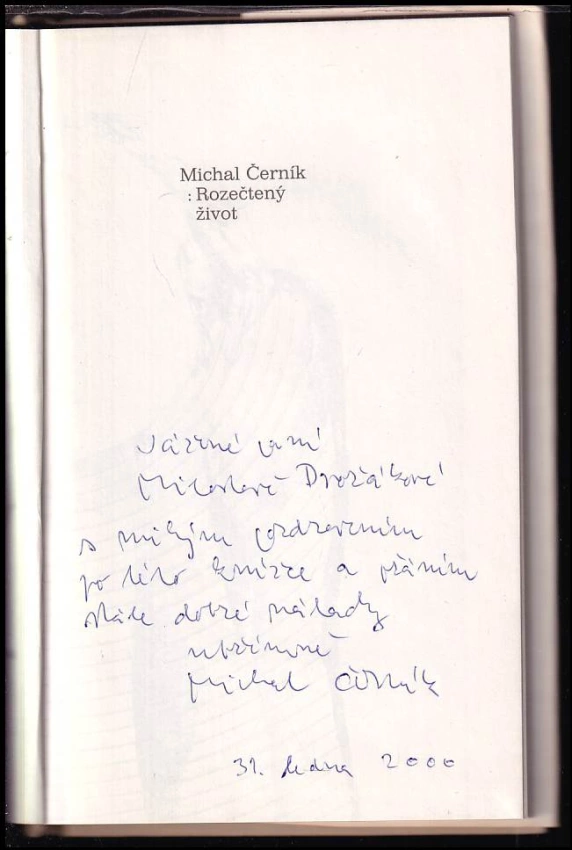 Michal Černík
: Rozečtený
život
Vážené paní
Miloslavě Dvořákové
s milým pozdravením
po této knížce a přáním
stále dobré nálady
upřímně
Michal Černík
31. ledna 2000